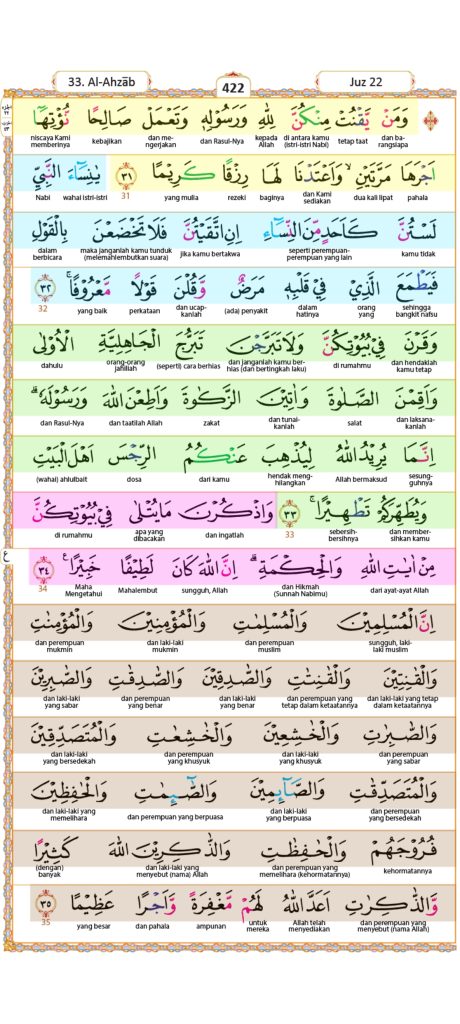 33. Al-Ahzāb
422
Juz 22
وَمَنْ يَّقْنُتْ مِنْكُنَّ لِلّٰهِ وَرَسُوْلِهٖ وَتَعْمَلْ صَالِحًا نُّؤْتِهَآ
dan ba-rangsiapa tetap taat di antara kamu (istri-istri Nabi) kepada Allah dan Rasul-Nya dan me-ngerjakan kebajikan niscaya Kami memberinya
اَجْرَهَا مَرَّتَيْنِۙ وَاَعْتَدْنَا لَهَا رِزْقًا كَرِيْمًا ٣١ يٰنِسَاۤءَ النَّبِيِّ
pahala dua kali lipat dan Kami sediakan baginya rezeki yang mulia 31 wahai istri-istri Nabi
لَسْتُنَّ كَاَحَدٍ مِّنَ النِّسَاۤءِ اِنِ اتَّقَيْتُنَّ فَلَا تَخْضَعْنَ بِالْقَوْلِ
kamu tidak seperti perempuan-perempuan yang lain jika kamu bertakwa maka janganlah kamu tunduk (melemahlembutkan suara) dalam berbicara
فَيَطْمَعَ الَّذِيْ فِيْ قَلْبِهٖ مَرَضٌ وَّقُلْنَ قَوْلًا مَّعْرُوْفًاۚ ٣٢
sehingga bangkit nafsu orang yang dalam hatinya (ada) penyakit dan ucap-kanlah perkataan yang baik 32
وَقَرْنَ فِيْ بُيُوْتِكُنَّ وَلَا تَبَرَّجْنَ تَبَرُّجَ الْجَاهِلِيَّةِ الْاُوْلٰى
dan hendaklah kamu tetap di rumahmu dan janganlah kamu ber-hias (dan bertingkah laku) (seperti) cara berhias orang-orang jahiliah dahulu
وَاَقِمْنَ الصَّلٰوةَ وَاٰتِيْنَ الزَّكٰوةَ وَاَطِعْنَ اللّٰهَ وَرَسُوْلَهٗۗ
dan laksana-kanlah salat dan tunai-kanlah zakat dan taatilah Allah dan Rasul-Nya
اِنَّمَا يُرِيْدُ اللّٰهُ لِيُذْهِبَ عَنْكُمُ الرِّجْسَ اَهْلَ الْبَيْتِ
sesung-guhnya Allah bermaksud hendak meng-hilangkan dari kamu dosa (wahai) ahlulbait
وَيُطَهِّرَكُمْ تَطْهِيْرًاۚ ٣٣ وَاذْكُرْنَ مَا يُتْلٰى فِيْ بُيُوْتِكُنَّ
dan member-sihkan kamu sebersih-bersihnya 33 dan ingatlah apa yang dibacakan di rumahmu
مِنْ اٰيٰتِ اللّٰهِ وَالْحِكْمَةِۗ اِنَّ اللّٰهَ كَانَ لَطِيْفًا خَبِيْرًاࣖ ٣٤
dari ayat-ayat Allah dan Hikmah (Sunnah Nabimu) sungguh, Allah Mahalembut Maha Mengetahui 34
اِنَّ الْمُسْلِمِيْنَ وَالْمُسْلِمٰتِ وَالْمُؤْمِنِيْنَ وَالْمُؤْمِنٰتِ
sungguh, laki-laki muslim dan perempuan muslim dan laki-laki mukmin dan perempuan mukmin
وَالْقٰنِتِيْنَ وَالْقٰنِتٰتِ وَالصّٰدِقِيْنَ وَالصّٰدِقٰتِ وَالصّٰبِرِيْنَ
dan laki-laki yang tetap dalam ketaatannya dan perempuan yang tetap dalam ketaatannya dan laki-laki yang benar dan perempuan yang benar dan laki-laki yang sabar
وَالصّٰبِرٰتِ وَالْخٰشِعِيْنَ وَالْخٰشِعٰتِ وَالْمُتَصَدِّقِيْنَ
dan perempuan yang sabar dan laki-laki yang khusyuk dan perempuan yang khusyuk dan laki-laki yang bersedekah
وَالْمُتَصَدِّقٰتِ وَالصَّاۤىِٕمِيْنَ وَالصّٰۤىِٕمٰتِ وَالْحٰفِظِيْنَ
dan perempuan yang bersedekah dan laki-laki yang berpuasa dan perempuan yang berpuasa dan laki-laki yang memelihara
فُرُوْجَهُمْ وَالْحٰفِظٰتِ وَالذّٰكِرِيْنَ اللّٰهَ كَثِيْرًا
kehormatannya dan perempuan yang memelihara (kehormatannya) dan laki-laki yang menyebut (nama) Allah (dengan) banyak
وَّالذّٰكِرٰتِ اَعَدَّ اللّٰهُ لَهُمْ مَّغْفِرَةً وَّاَجْرًا عَظِيْمًا ٣٥
dan perempuan yang menyebut (nama Allah) Allah telah menyediakan untuk mereka ampunan dan pahala yang besar 35